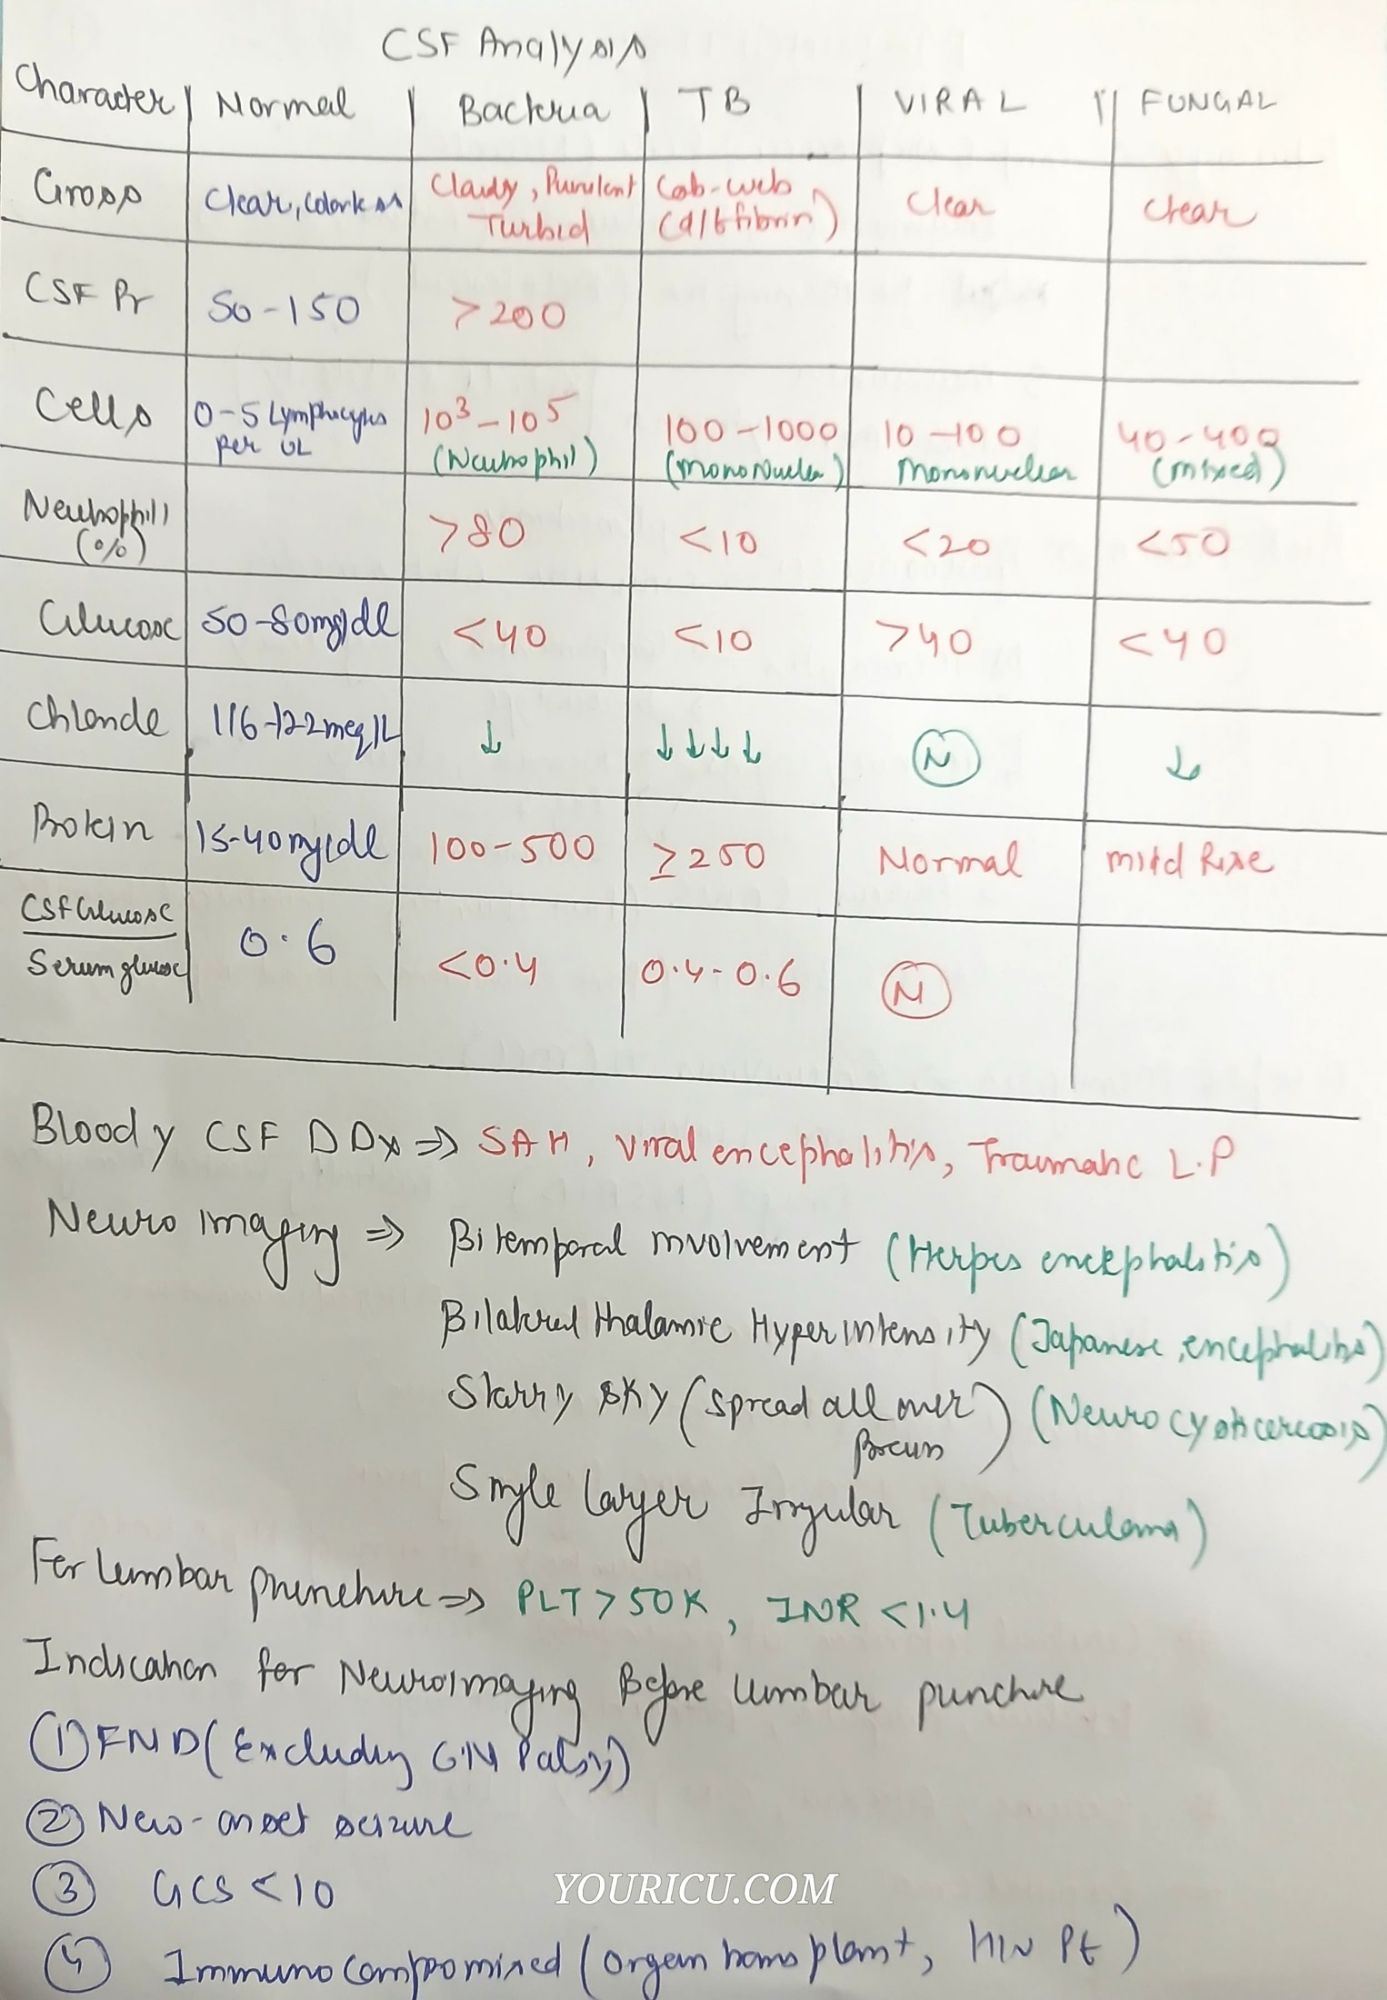 CSF Analysis
Character | Normal | Bacteria | TB | VIRAL | FUNGAL
Gross | Clear, Colorless | Cloudy, Purulent Turbid | Cob-web (d/t fibrin) | Clear | Clear
CSF Pr | 50-150 | >200
Cells | 0-5 Lymphocytes per UL | 10³-10⁵ (Neutrophil) | 100-1000 (mononuclear) | 10-100 Mononuclear | 40-400 (mixed)
Neutrophill (%) | >80 | <10 | <20 | <50
Glucose | 50-80mg/dl | <40 | <10 | >40 | <40
Chloride | 116-122meq/L | ↓ | ↓↓↓↓ | N | ↓
Protein | 15-40mg/dl | 100-500 | ≥250 | Normal | mild Rise
CSF Glucose / Serum glucose | 0.6 | <0.4 | 0.4-0.6 | N
Bloody CSF DDx ⇒ SAH, Viral encephalitis, Traumatic L.P
Neuro imaging ⇒ Bitemporal involvement (Herpes encephalitis)
Bilateral thalamic Hyperintensity (Japanese encephalitis)
Starry sky (spread all over Brain) (Neurocysticercosis)
Single layer Irregular (Tuberculoma)
For lumbar puncture ⇒ PLT > 50K, INR <1.4
Indication for Neuroimaging Before lumbar puncture
① FND (Excluding CN Palsy)
② New-onset seizure
③ GCS <10
④ Immunocompromised (organ transplant, HIV Pt)
YOURICU.COM